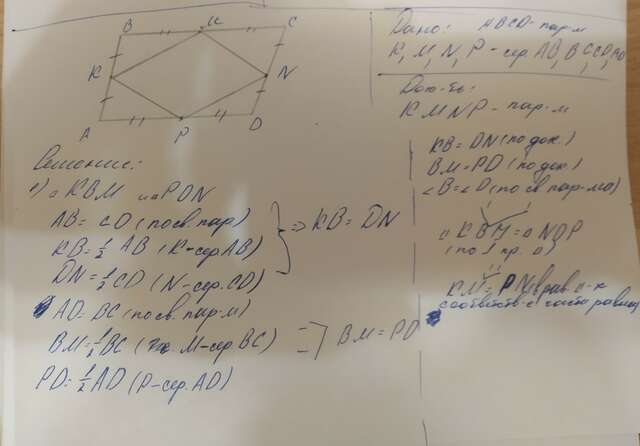 B M C
K N
A P D
Дано: ABCD-пар-м
K, M, N, P - сер. AB, BC, CD, AD
Док-ть:
KMNP - пар-м
Решение:
1) △ KBM и △ PDN
AB = CD (по св. пар)
KB = 1/2 AB (K-сер AB)
DN = 1/2 CD (N-сер. CD)
=> KB = DN
AD = BC (по св. пар-м)
BM = 1/2 BC (т.к. M-сер BC)
=> BM = PD
PD = 1/2 AD (P-сер. AD)
KB = DN (по док.)
BM = PD (по док.)
∠B = ∠D (по св пар-ма)
△ KBM = △ NDP
(по 1 пр. △)
KM = PN (в рав. △-к
соответств-е части равны